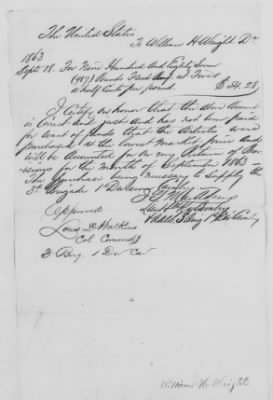 The United States
To William H Wright Dr
1863
Sept 18. For Nine Hundred And Eighty Seven
(987) Pounds Fresh Beef at Three
& half Cents per pound. $ 34.28
I Certify on honor that the above Account
is Correct and just and has not been paid
for want of funds that the Articles were
purchased at the lowest market price and
will be Accounted for on my Return of Pro-
visions for the Month of September 1863-
The purchase being necessary to supply the
3d Brigade 1st Div Cavalry
Approved
Louis D. Watkins
Col Commdg
3 Brig. 1 Div Cav
William H. Wright